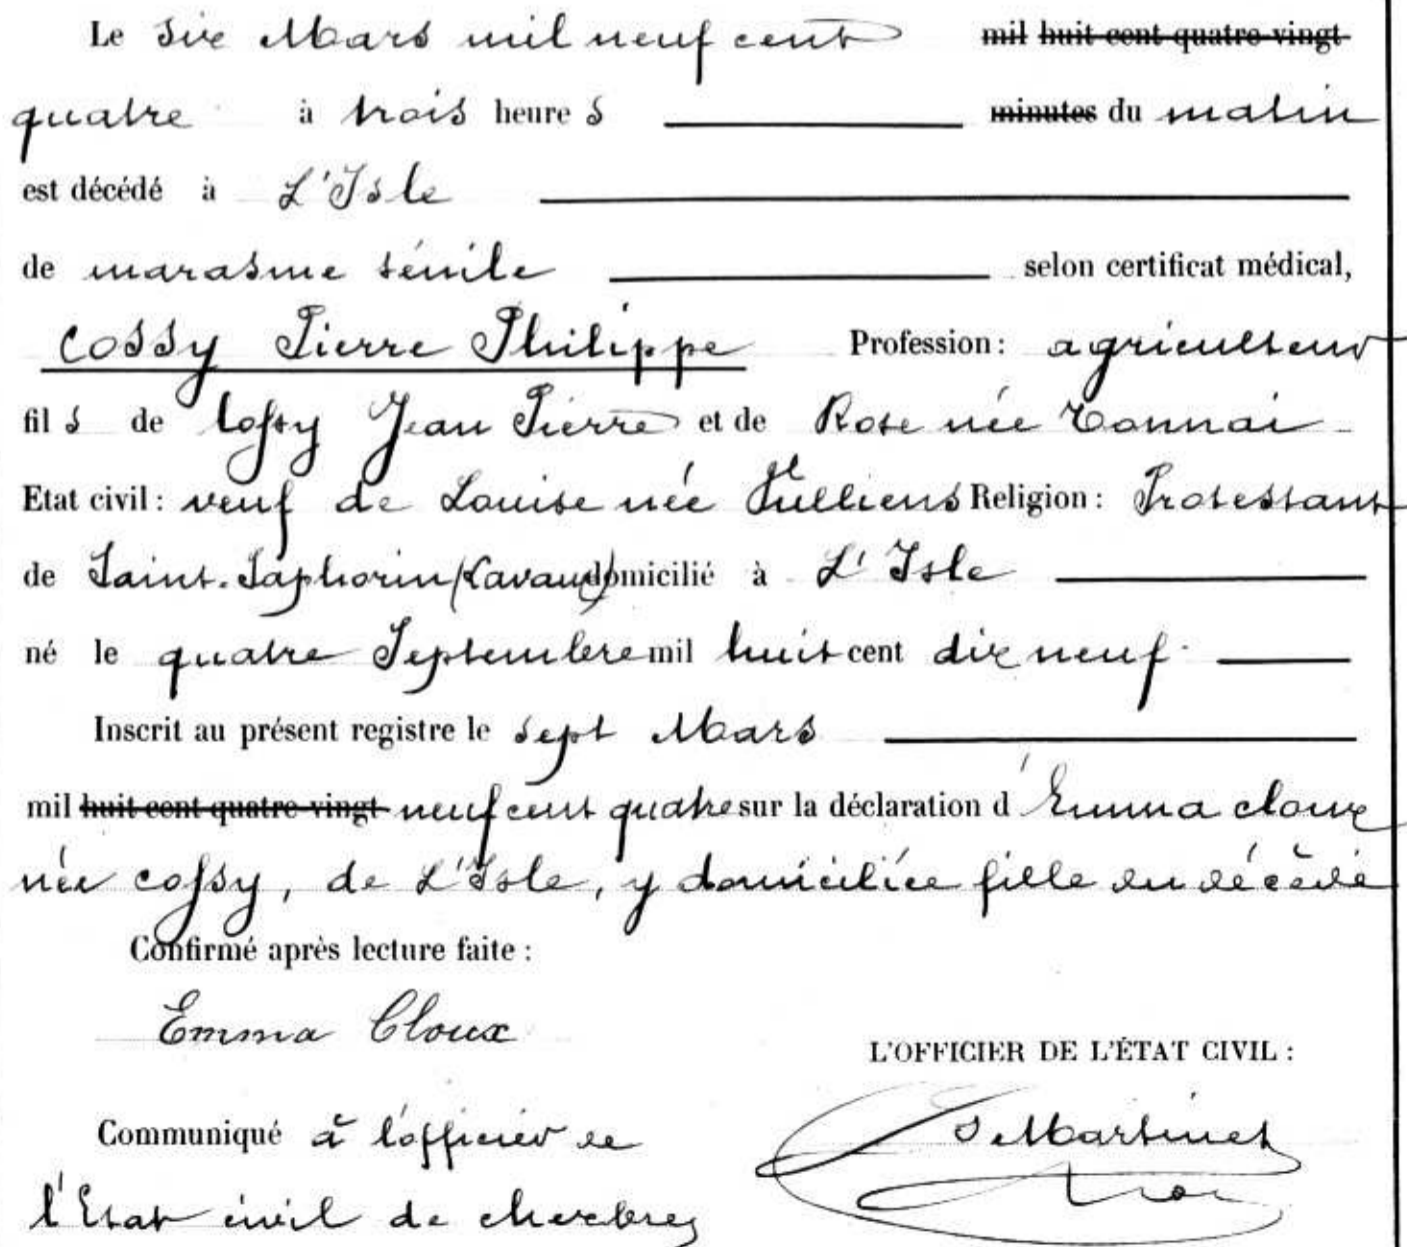 Le Six Mars mil neuf cent mil huit cent quatre-vingt
quatre à trois heures minutes du matin
est décédé à L'Isle
de marasme sénile selon certificat médical,
Cossy Pierre Philippe Profession: agriculteur
fils de Cossy Jean Pierre et de Rose née
Etat civil: veuf de Louise née Religion: Protestant
de Saint-Saphorin (Lavaux) domicilié à L'Isle
né le quatre Septembre mil huit cent dix neuf
Inscrit au présent registre le sept Mars
mil huit cent quatre-vingt neuf cent quatre sur la déclaration d'Emma Cloux
née Cossy, de L'Isle, y domiciliée fille du décédé
Confirmé après lecture faite:
Emma Cloux
L'OFFICIER DE L'ÉTAT CIVIL:
Communiqué à l'officier de
Martinet
l'Etat civil de Chexbres